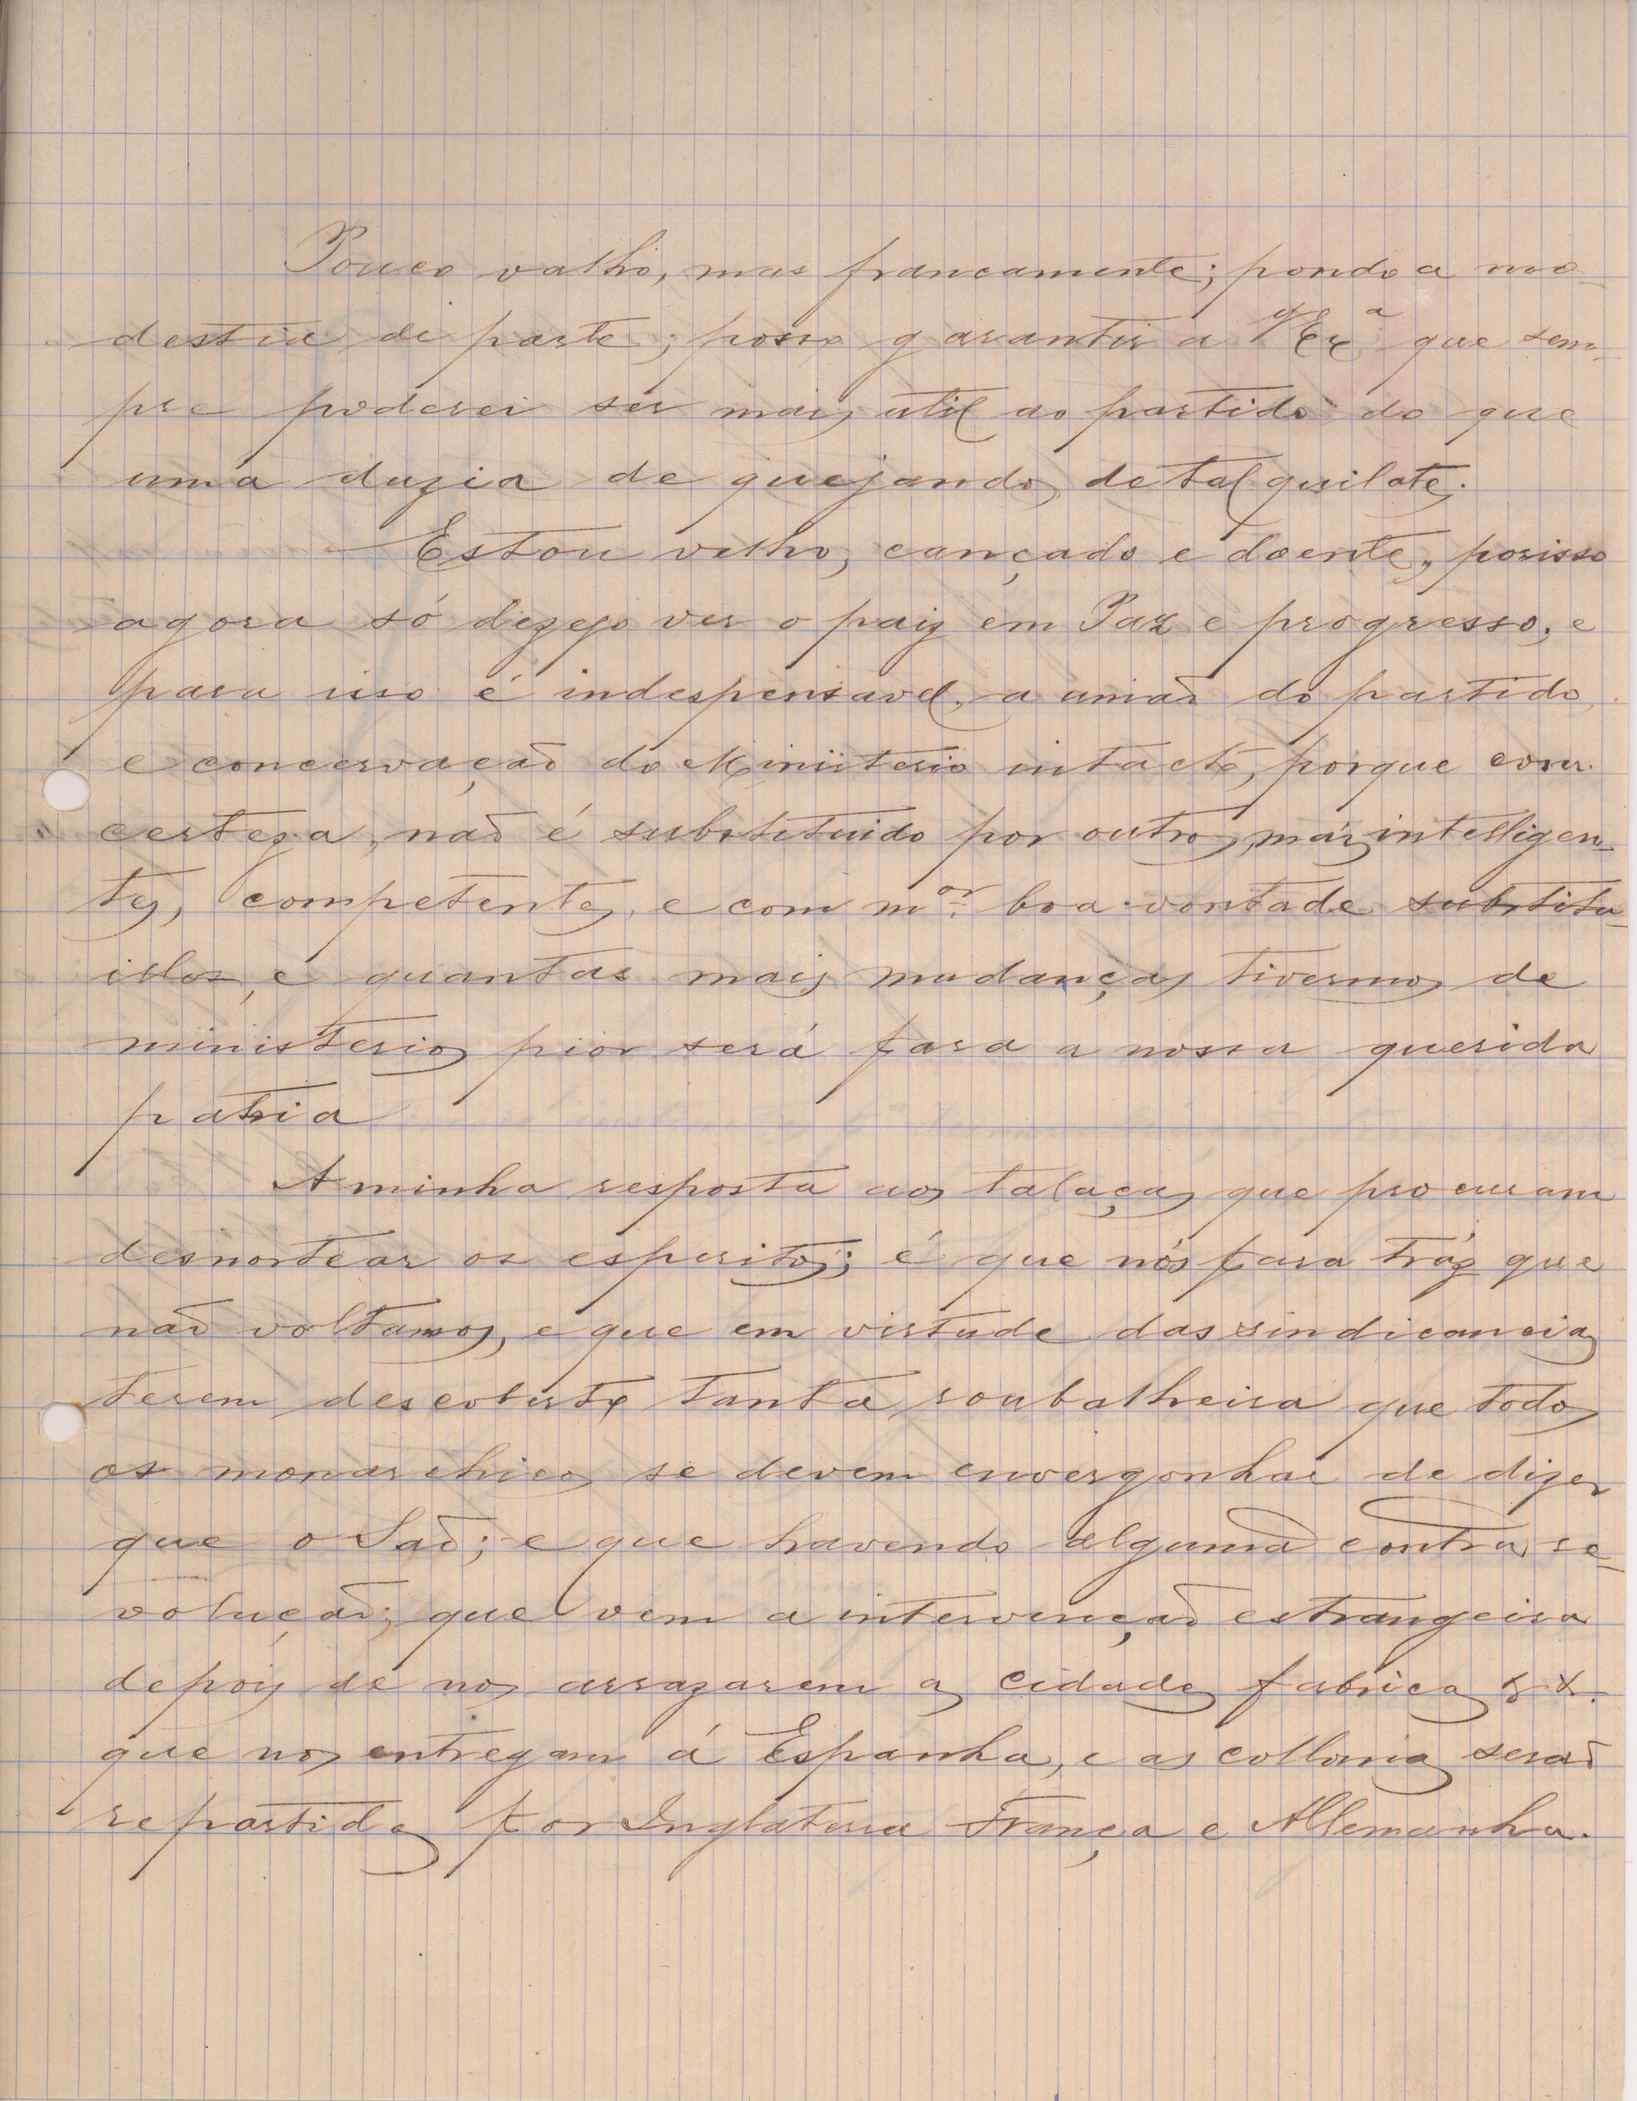 Pouco valho, mas francamente; pondo a mo-
destia de parte; posso garantir a VExª que sem-
pre poderei ser mais util ao partido do que
uma duzia de quejandos de tal quilate.
Estou velho, cançado e doente, porisso
agora só dezejo ver o paiz em Paz e progresso, e
para isso é indespensavel, a união do partido
e concervação do Ministerio intacto, porque com
certeza, não é substituido por outros, mais intelligen-
tes, competentes, e com mor boa vontade substitu-
illos, e quantas mais mudanças tivermos de
ministerios pior será para a nossa querida
patria
A minha resposta aos talaças que procuram
desnortear os espiritos; é que nós para tráz que
não voltamos, e que em virtude das sindicancias
terem descoberto tanta roubalheira que todos
os monarchicos se devem envergonhar de dizer
que o São; e que havendo alguma contra re-
volução; que vem a intervenção estrangeira
depois de nos arrazarem as cidades fabricas &x.
que nos entregam á Espanha, e as collonias serão
repartidas por Inglaterra França e Allemanha.